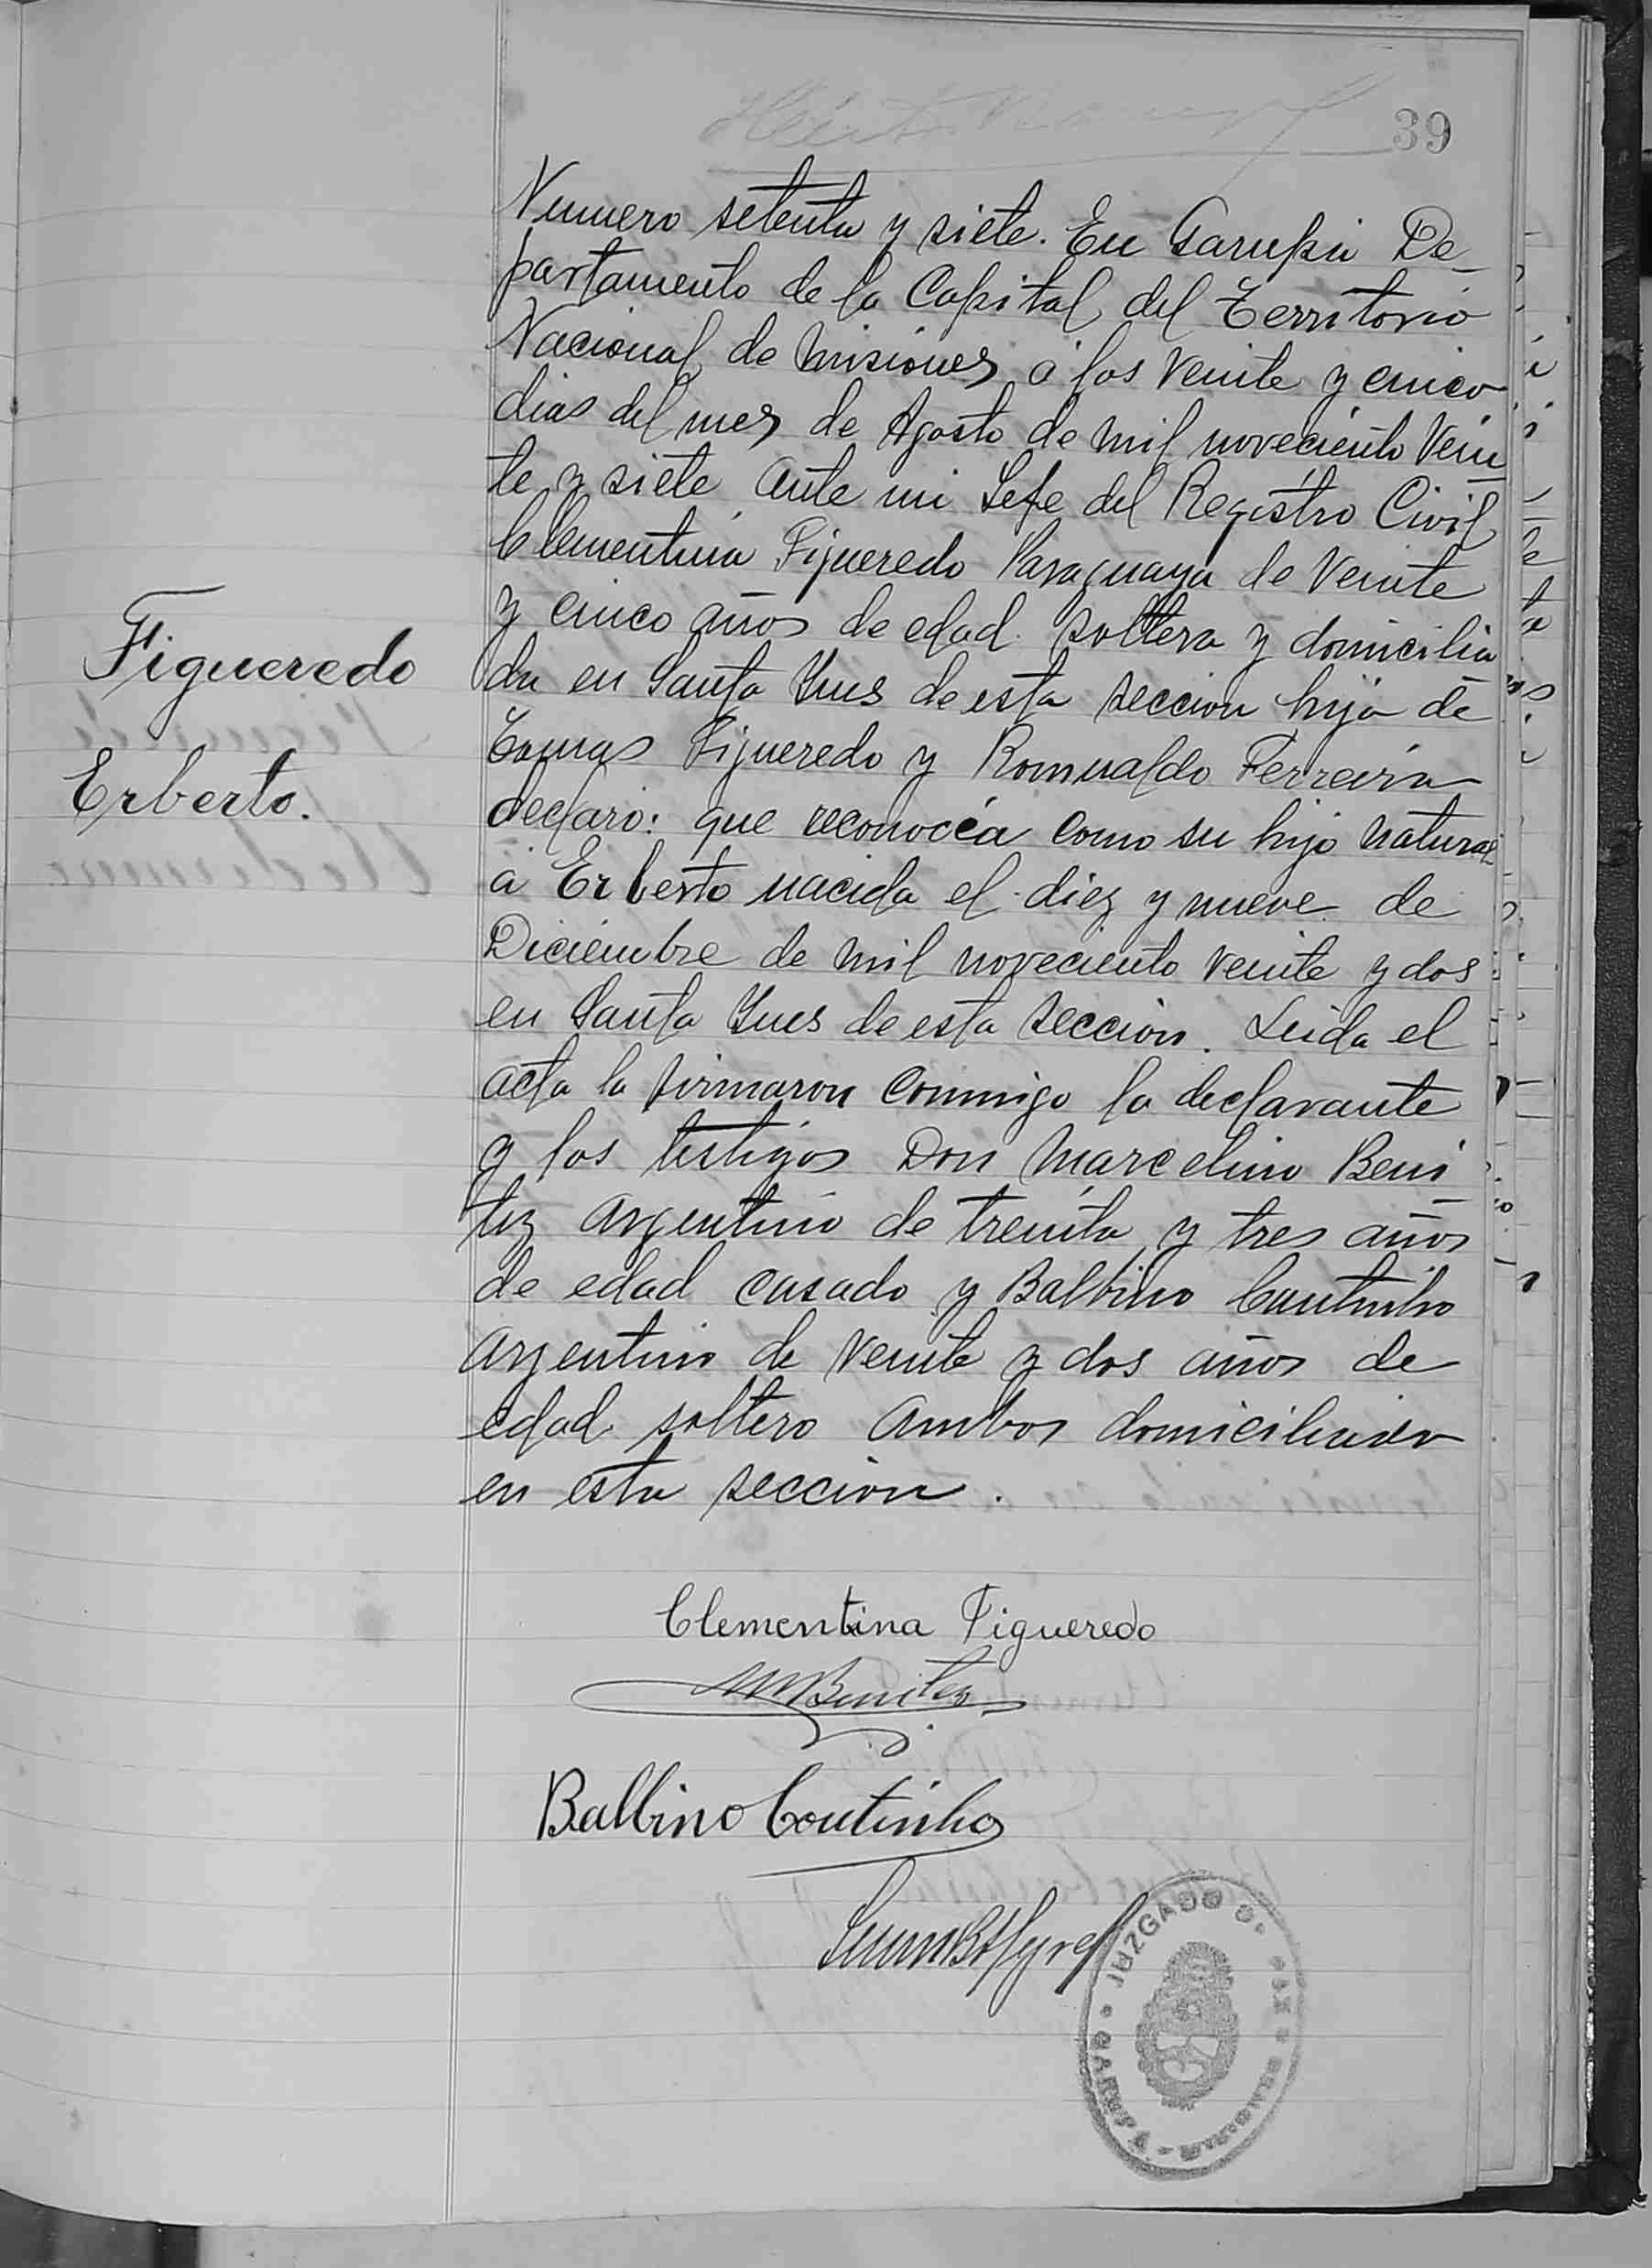 39
Numero setenta y siete. En Garupá De-
partamento de la Capital del Territorio
Nacional de Misiones á los veinte y cinco
dias del mes de Agosto de mil noveciento vein
te y siete ante mi Jefe del Registro Civil
Clementina Figueredo Paraguaya de veinte
y cinco años de edad soltera y domicilia
da en Santa Ynes de esta seccion hija de
Tomas Figueredo y Romualdo Ferreira
declaró: que reconocía como su hijo natural
á Erberto nacida el diez y nueve de
Diciembre de mil noveciento veinte y dos
en Santa Ynes de esta sección. Leida el
acta la firmaron conmigo la declarante
y los testigos Don Marcelino Beni
tez argentino de treinta y tres años
de edad casado y Balbino Cautinho
argentino de veinte y dos años de
edad soltero ambos domiciliados
en esta sección.
Figueredo
Erberto.
Clementina Figueredo
MBenitez
Balbino Coutinho
JUZGADO DE PAZ
GARUPÁ - MISIONES